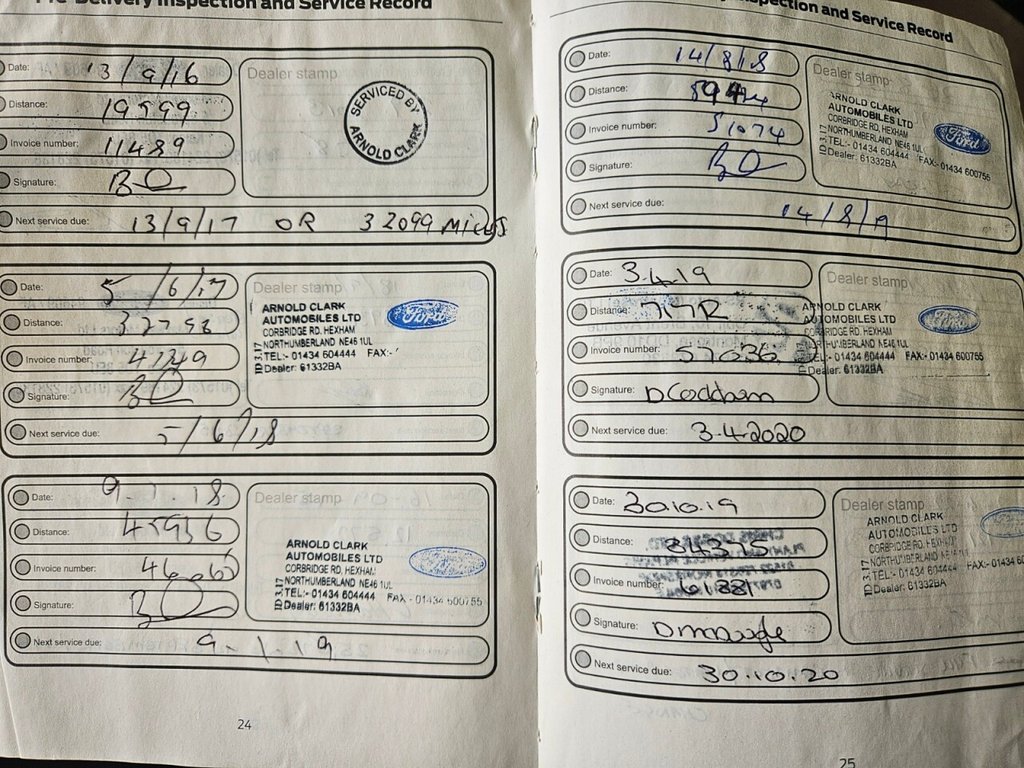 Pre-Delivery Inspection and Service Record
Date: 13/9/16
Distance: 19999
Invoice number: 11489
Signature:
Next service due: 13/9/17 OR 32099 MILES
Dealer stamp
SERVICED BY
ARNOLD CLARK
Date: 5/6/17
Distance:
Invoice number:
Signature:
Next service due: 5/6/18
Dealer stamp
ARNOLD CLARK
AUTOMOBILES LTD
CORBRIDGE RD. HEXHAM
NORTHUMBERLAND NE46 1UL
TEL:- 01434 604444 FAX:-
Dealer: 61332BA
ID 3.17
Ford
Date: 9.1.18
Distance: 45936
Invoice number:
Signature:
Next service due: 9-1-19
Dealer stamp
ARNOLD CLARK
AUTOMOBILES LTD
CORBRIDGE RD, HEXHAM
NORTHUMBERLAND NE46 1UL
TEL:- 01434 604444 FAX:- 01434 600755
Dealer: 61332BA
ID 3.17
24
Inspection and Service Record
Date: 14/8/18
Distance:
Invoice number: 51074
Signature:
Next service due: 14/8/19
Dealer stamp
ARNOLD CLARK
AUTOMOBILES LTD
CORBRIDGE RD, HEXHAM
NORTHUMBERLAND NE46 1UL
TEL:- 01434 604444 FAX:- 01434 600755
Dealer: 61332BA
ID 3.17
Ford
Date: 3.4.19
Distance:
Invoice number: 57036
Signature:
Next service due: 3.4.2020
Dealer stamp
ARNOLD CLARK
AUTOMOBILES LTD
CORBRIDGE RD, HEXHAM
NORTHUMBERLAND NE46 1UL
TEL:- 01434 604444 FAX:- 01434 600755
Dealer: 61332BA
Ford
Date: 30.10.19
Distance: 84325
Invoice number: 61881
Signature:
Next service due: 30.10.20
Dealer stamp
ARNOLD CLARK
AUTOMOBILES LTD
CORBRIDGE RD, HEXHAM
NORTHUMBERLAND NE46 1UL
TEL:- 01434 604444 FAX:- 01434
Dealer: 61332BA
ID 3.17
25